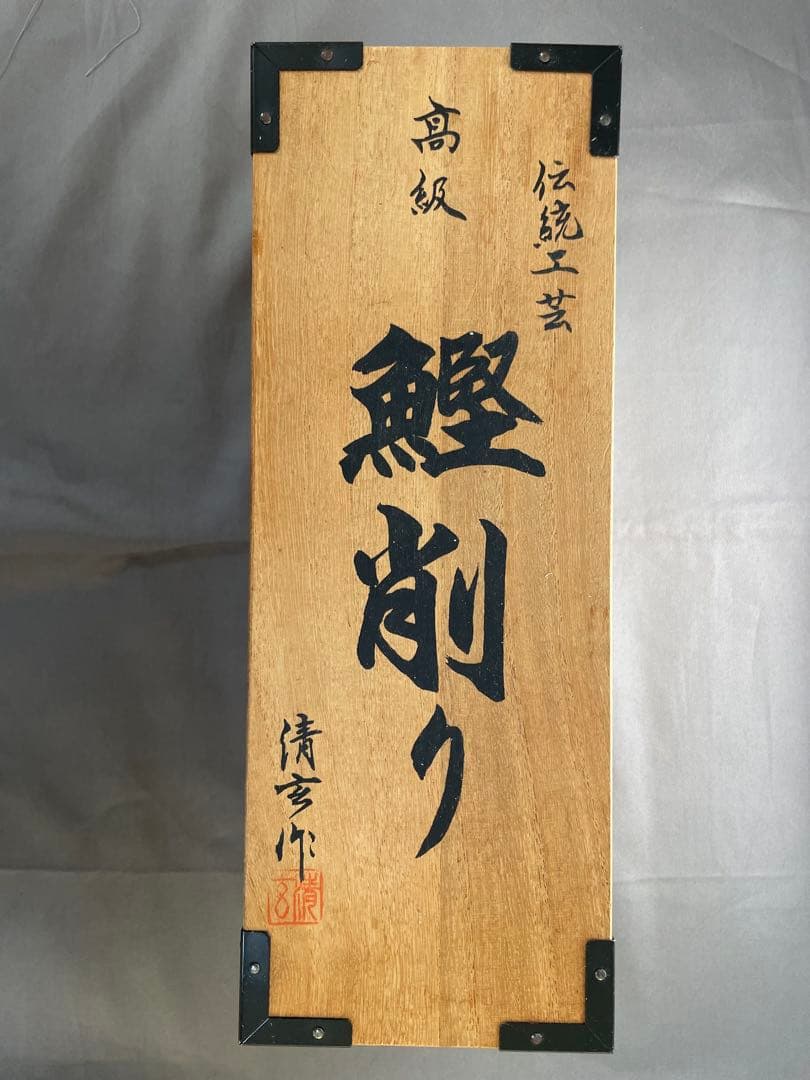 伝統工芸
高級
鰹削り
清玄作
清玄